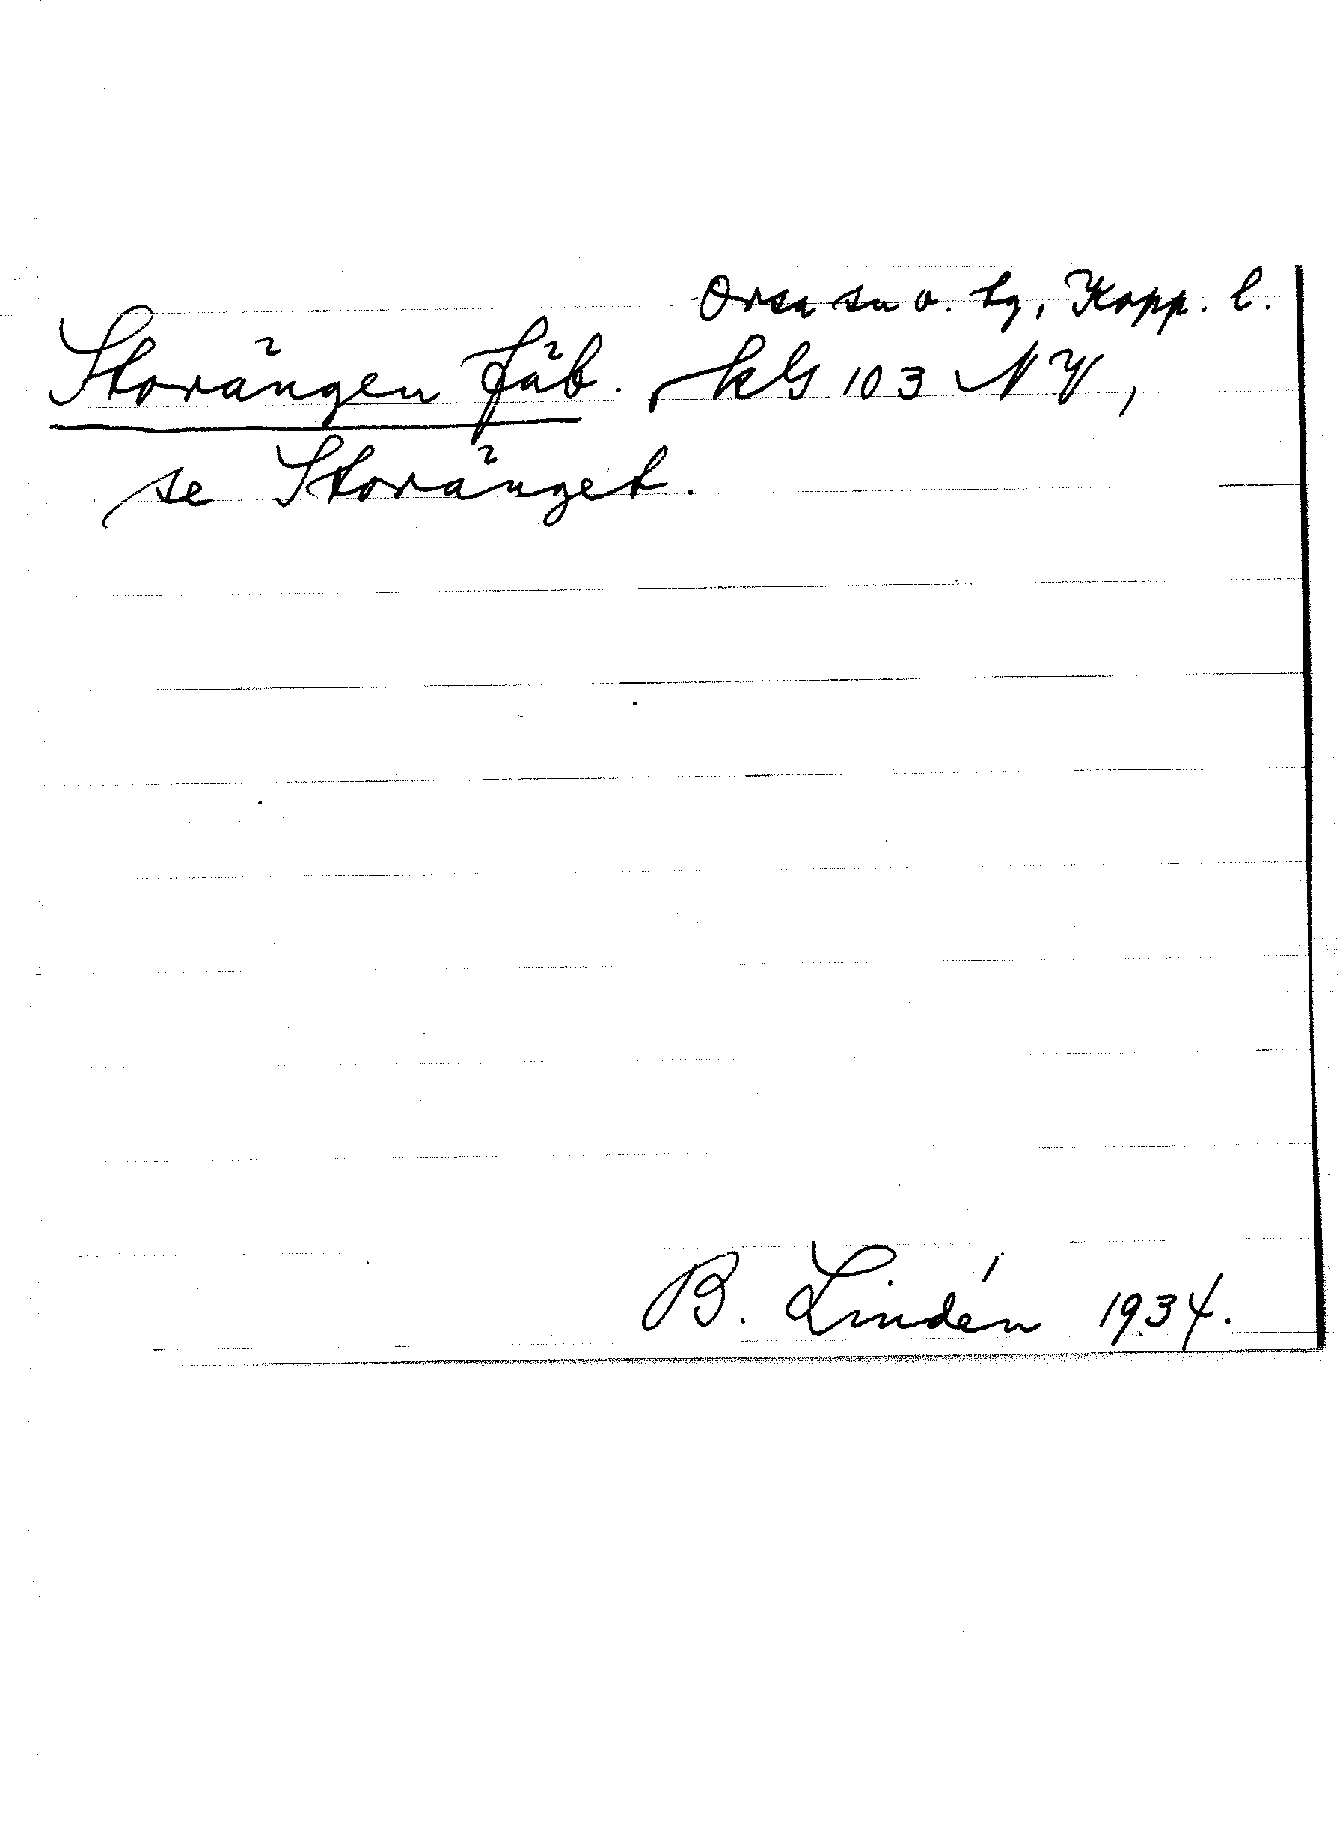 Orsa sn o. tg, Kopp. l.
Storängen fäb. , kG 103 NV,
se Storänget.
B. Lindén 1934.